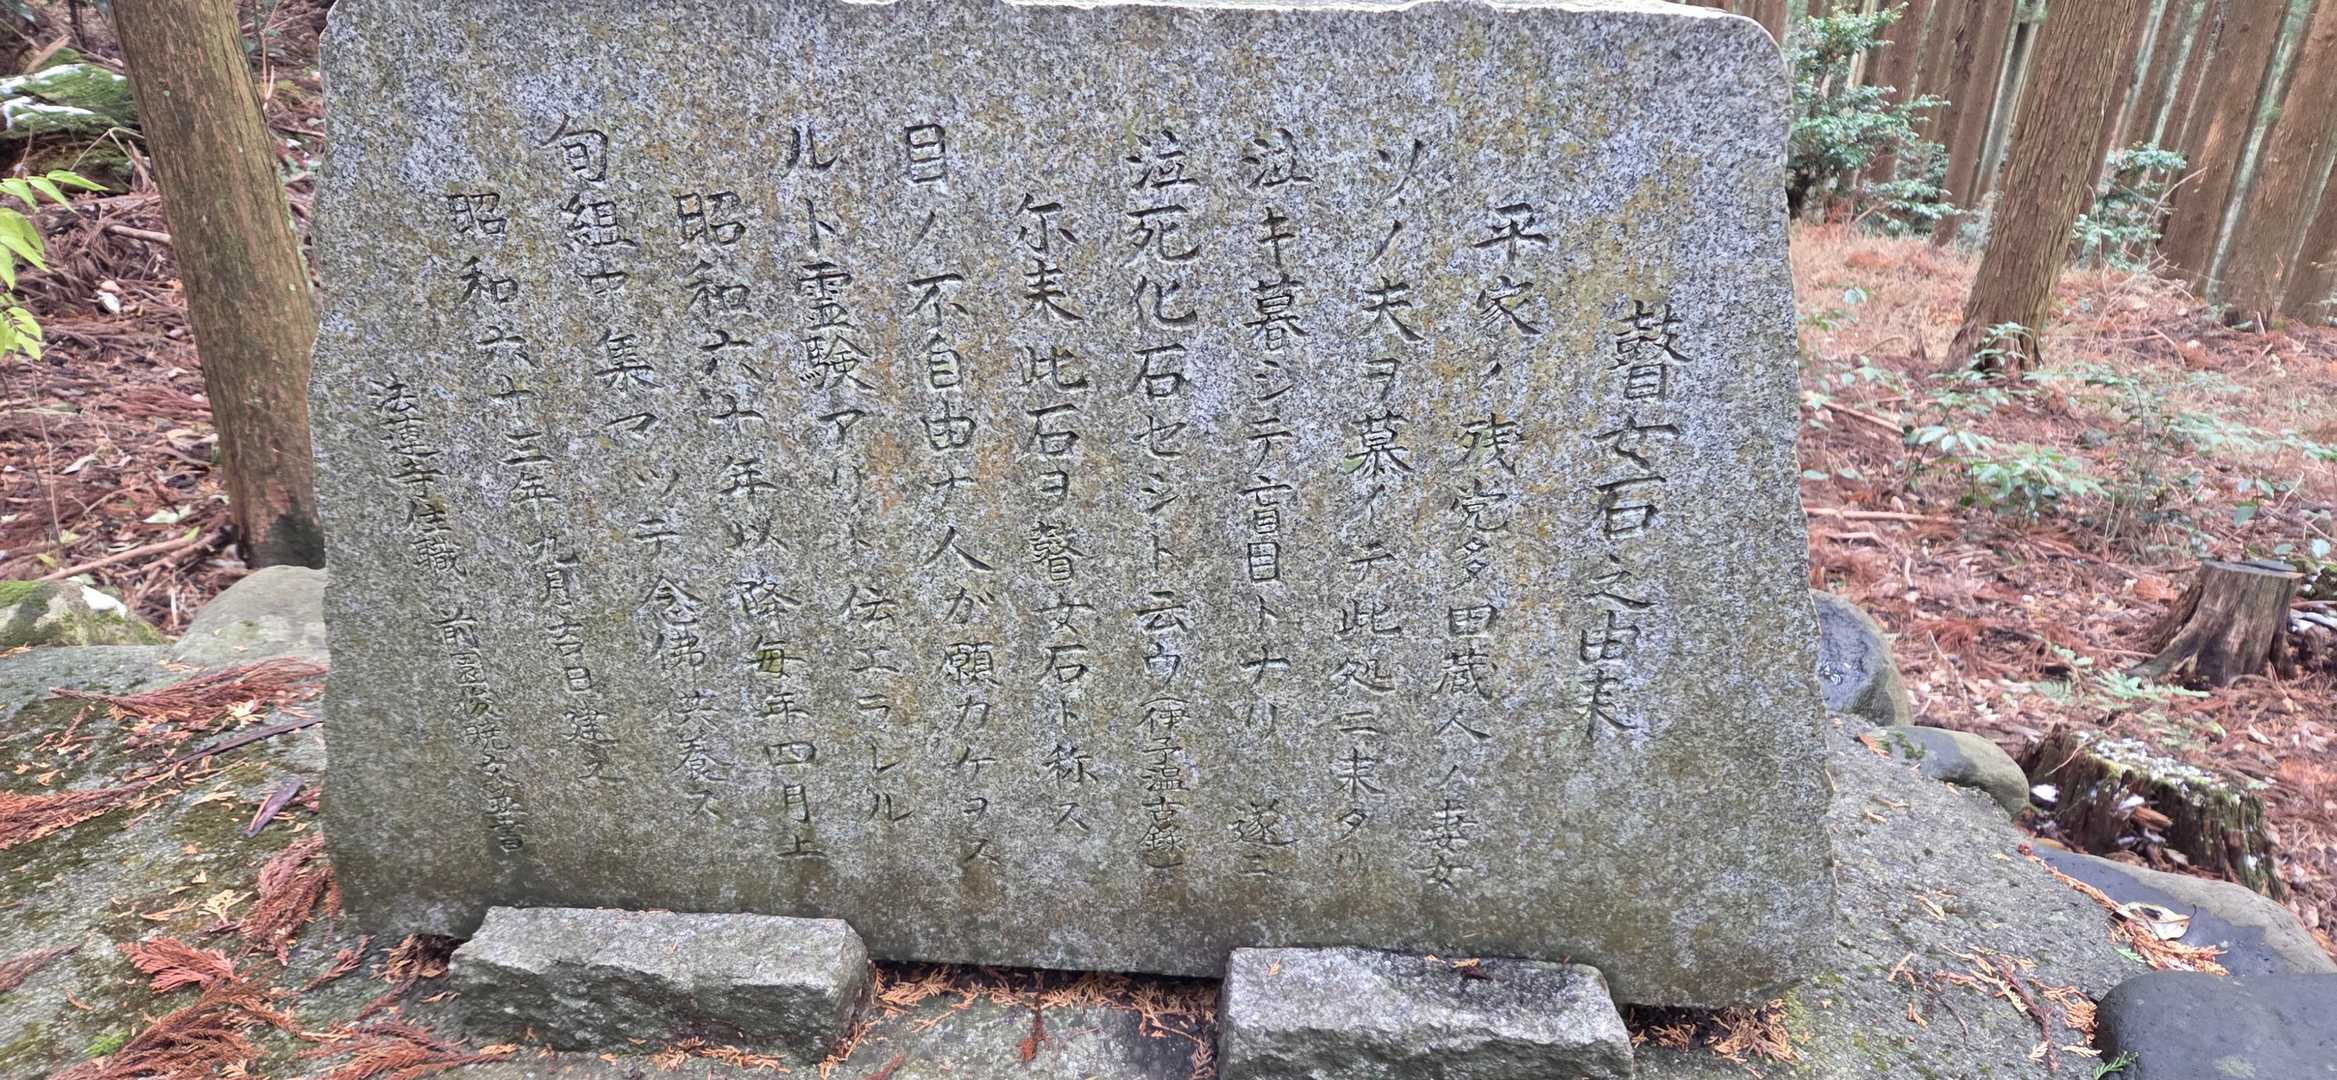 瞽女石之由来
平家ノ残党多田蔵人ノ妻女
ソノ夫ヲ慕イテ此処ニ来タリ
泣キ暮シテ盲目トナリ遂ニ
泣死化石セシト云ウ(伊予温古録)
尓来此石ヲ瞽女石ト称ス
目ノ不自由ナ人が願カケヲス
ルト霊験アリト伝エラレル
昭和六十年以降毎年四月上
旬組中集マッテ念佛供養ス
昭和六十三年九月吉日建之
法蓮寺住職 前園